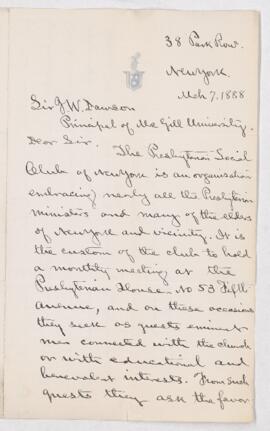 38 Park Row.
New York.
Mch 7, 1888
Sir J W. Dawson
Principal of Mc Gill University.
Dear Sir.
The Presbyterian Social
Club of New York is an organisation
embracing nearly all the Presbyterian
ministers and many of the elders
of New York and vicinity. It is
the custom of the club to hold
a monthly meeting at the
Presbyterian House. No 53 Fifth
avenue, and on these occasions
they seek as guests eminent
men connected with the church
or with educational and
benevolent interests. From such
guests they ask the favor